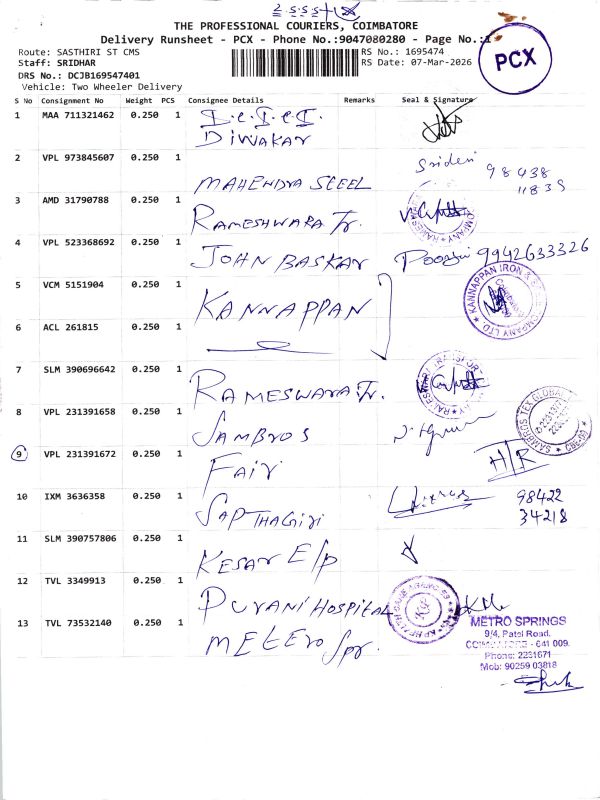 THE PROFESSIONAL COURIERS, COIMBATORE
Delivery Runsheet - PCX - Phone No.:9047080280 - Page No.:1
PCX
Route: SASTHIRI ST CMS
RS No.: 1695474
Staff: SRIDHAR
RS Date: 07-Mar-2026
DRS No.: DCJB169547401
Vehicle: Two Wheeler Delivery
S No Consignment No Weight PCS Consignee Details Remarks Seal & Signature
1 MAA 711321462 0.250 1
DIWAKAR
2 VPL 973845607 0.250 1 MAHENDRA STEEL Sridevi 98438
11839
3 AMD 31790788 0.250 1 RAMESHWARA Tr.
4 VPL 523368692 0.250 1 JOHN BASKAR 9942633326
5 VCM 5151904 0.250 1 KANNAPPAN
KANNAPPAN IRON & STEEL COMPANY LTD
6 ACL 261815 0.250 1
7 SLM 390696642 0.250 1 RAMESWARA Tr.
8 VPL 231391658 0.250 1 SAMBROS
SAMBROS TEX GLOBAL
9 VPL 231391672 0.250 1 FAIR H/R
10 IXM 3636358 0.250 1 SAPTHAGIRI 98422
34218
11 SLM 390757806 0.250 1 KESAR E/p
12 TVL 3349913 0.250 1 PURANI HOSPITAL
13 TVL 73532140 0.250 1 METERO Spr.
METRO SPRINGS
9/4, Patel Road,
COIMBATORE - 641 009.
Phone: 2231671
Mob: 90259 03818